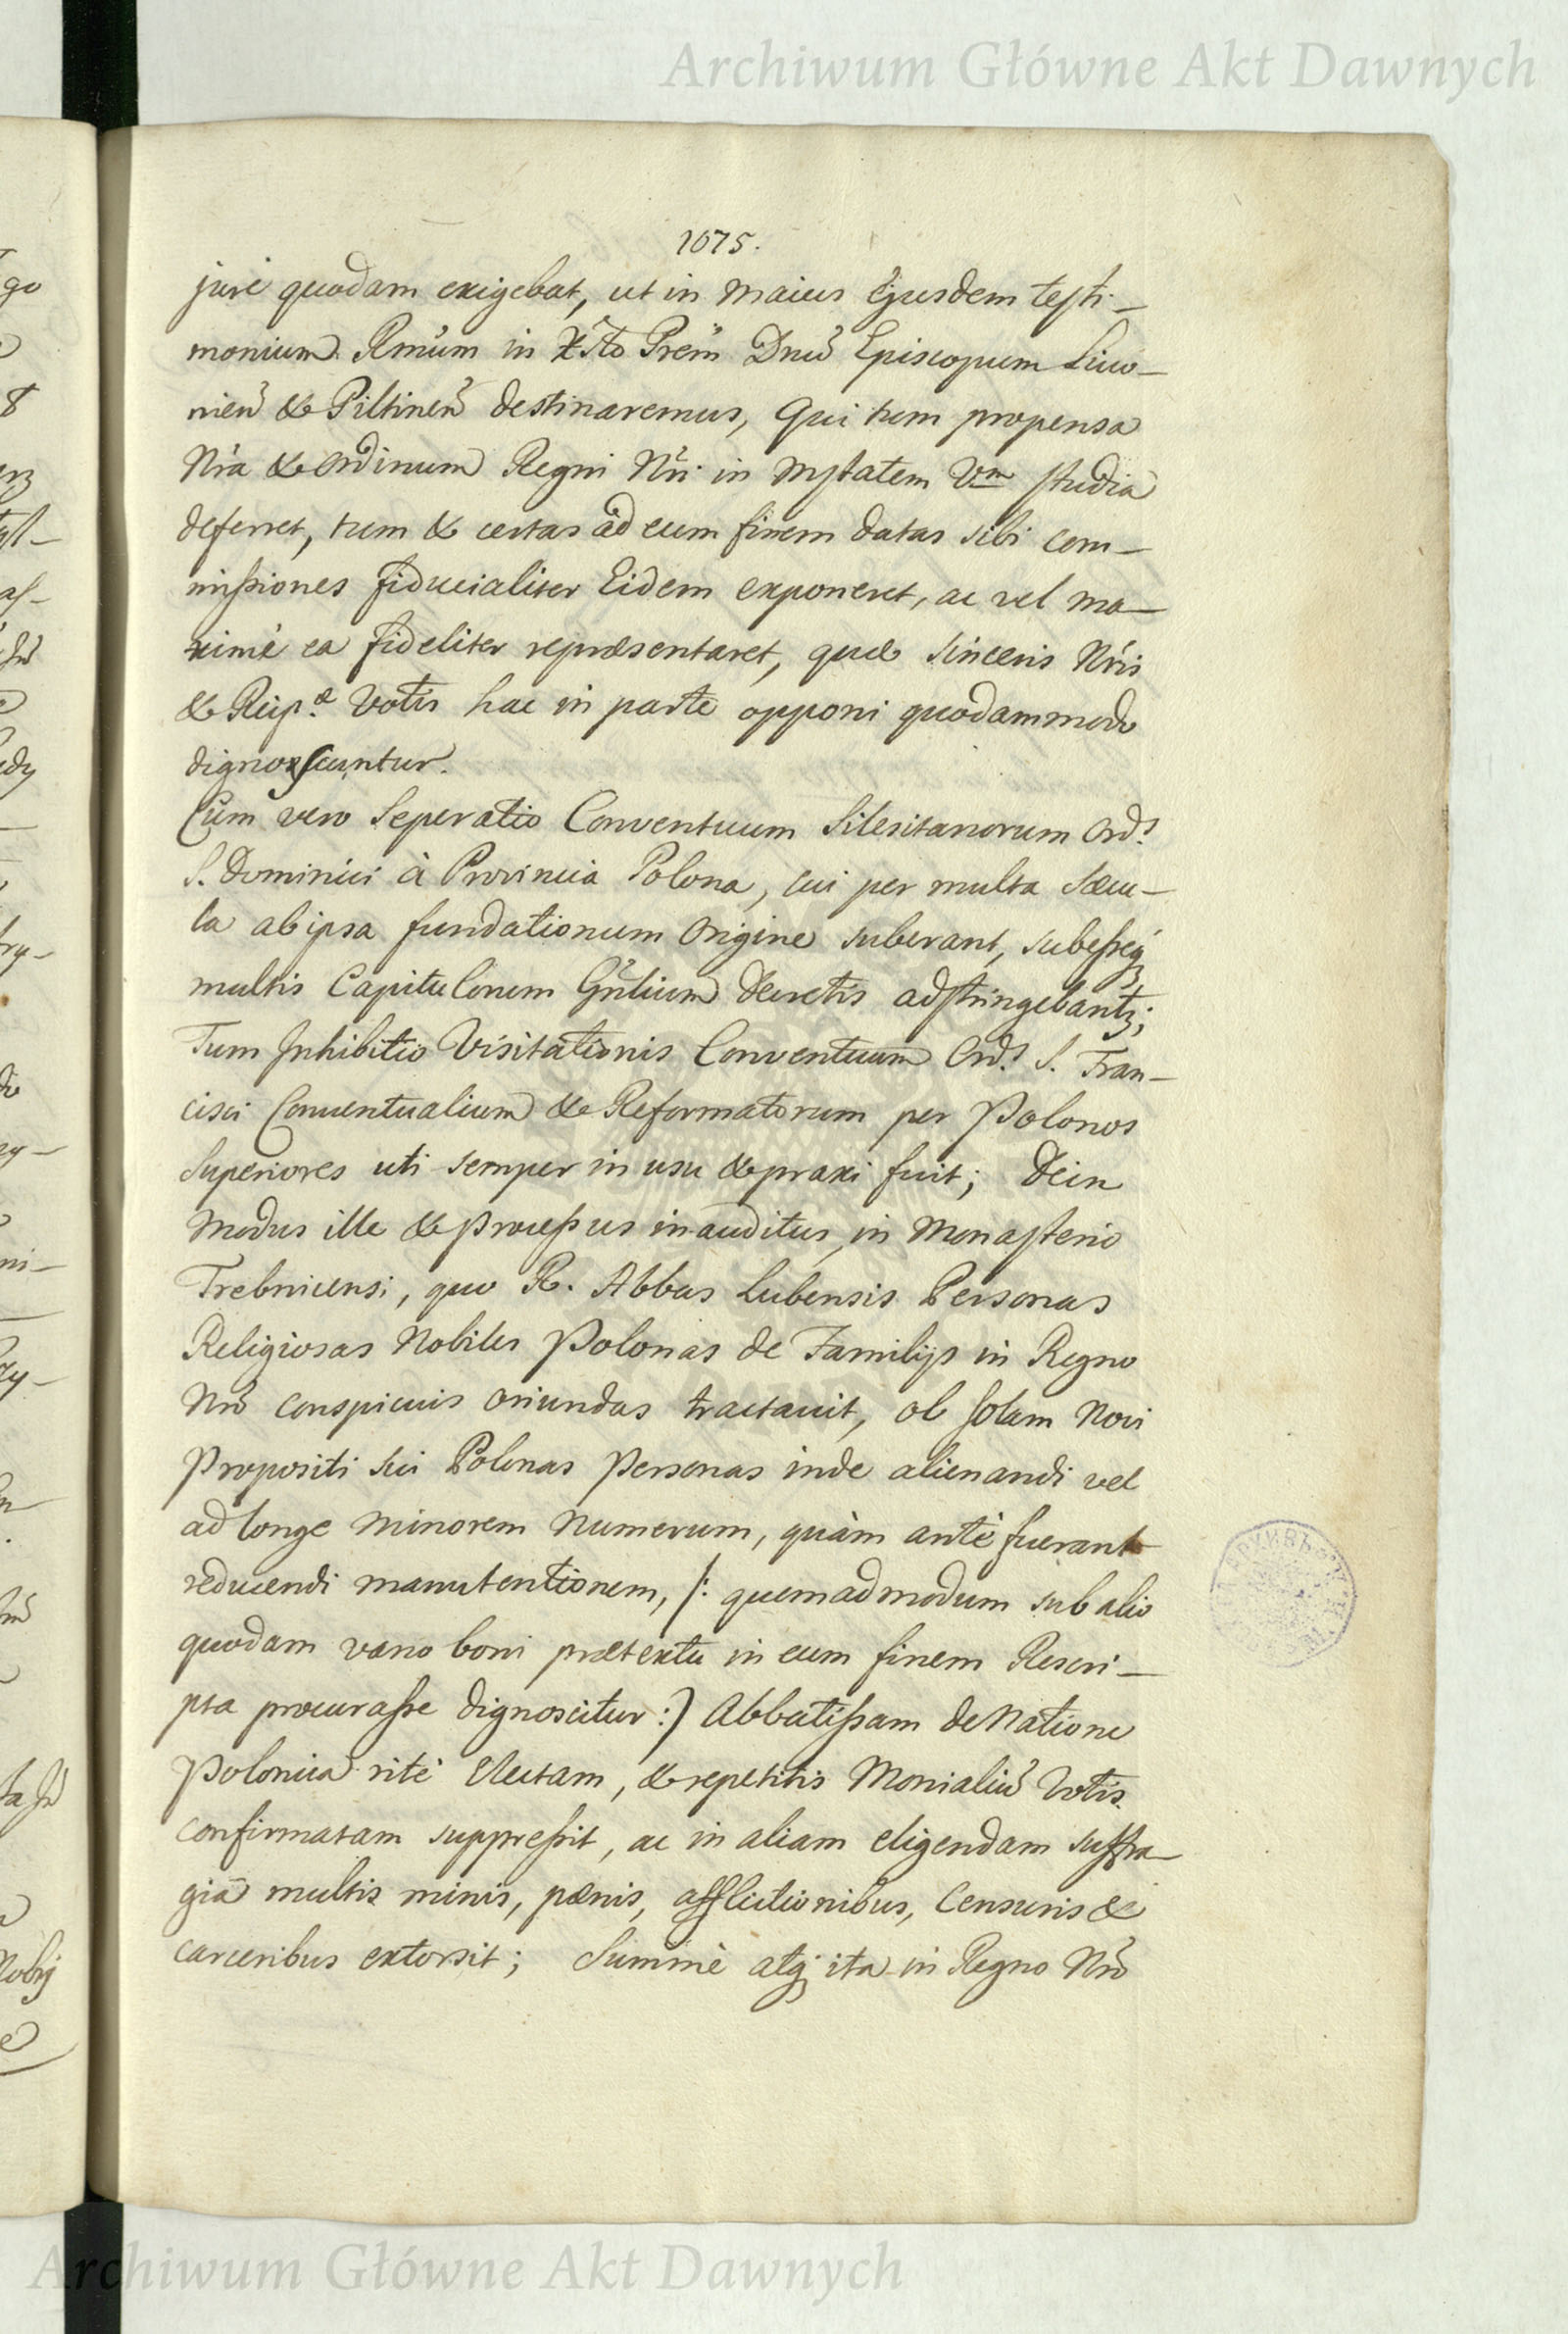 Archiwum Główne Akt Dawnych
1675.
jure quodam exigebat, ut in maius Ejusdem testi-
monium Rmũm in Xto Prẽm Dnũ Episcopum Livo-
nieñ & Piltineñ destinaremus, Qui tum propensa
Nr̃a & Ordinum Regni Nr̃i in Mstatem Vm studia
deferret, tum & certas ad eum finem datas sibi com-
missiones fiducialiter Eidem exponeret, ac vel ma-
ximè ea fideliter repræsentaret, quæ sinceris Nr̃is
& Reip.æ Votis hac in parte opponi quodammodo
dignoscuntur.
Cùm vero Seperatio Conventuum Silesitanorum Ord.s
S. Dominici à Provincia Polona, cui per multa Sæcu-
la ab ipsa fundationum Origine suberant, subesseq3
multis Capitulorum Gñlium Decretis adstringebant3;
Tum Inhibitio Visitationis Conventuum Ord.s S. Fran-
cisci Conventualium & Reformatorum per Polonos
Superiores uti semper in usu & praxi fuit; Dein
Modus ille & processus inauditus, in Monasterio
Trebnicensi, quo R. Abbas Lubensis Personas
Religiosas Nobiles Polonas de Familijs in Regno
Nrõ conspicuis oriundas tractavit, ob solam Novi
Propositi sui Polonas Personas inde alienandi vel
ad longe minorem Numerum, quàm antè fuerant
reducendi manutentionem, /: quemadmodum sub alio
quodam vano boni prætextu in eum finem Rescri-
pta procurasse dignoscitur :) Abbatissam de Natione
Polonica ritè Electam, & repetitis Monialiũ Votis
confirmatam suppressit, ac in aliam eligendam suffra-
gia multis minis, pænis, afflictionibus, Censuris &
carceribus extorsit; Summè atq; ita in Regno Nrõ
Archiwum Główne Akt Dawnych